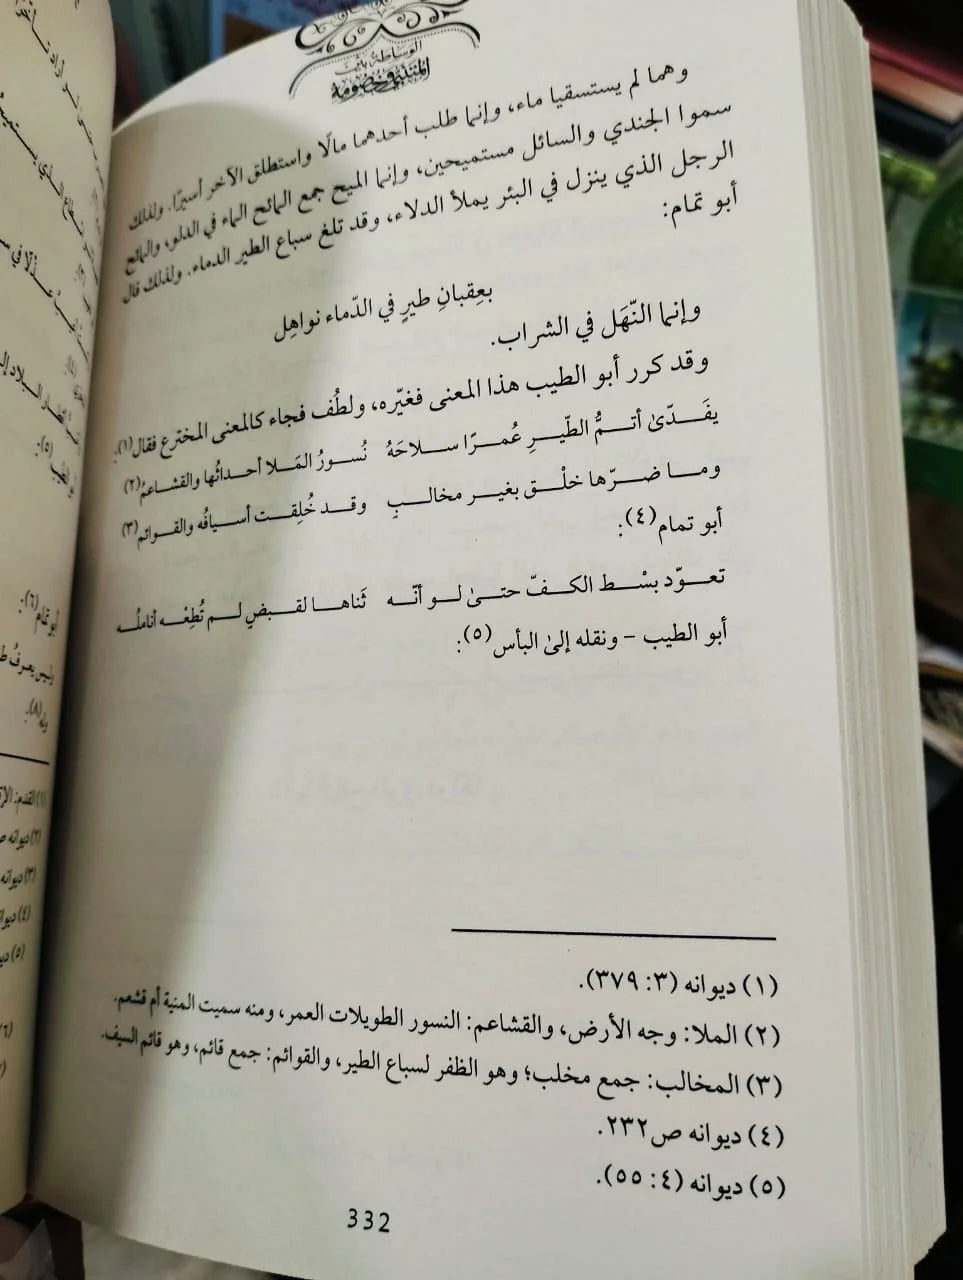 الوساطة بين
المتنبي وخصومه
وهما لم يستسقيا ماء، وإنما طلب أحدهما مالًا واستطلق الآخر أسيرًا. ولذلك
سموا الجندي والسائل مستميحين، وإنما الميح جمع المائح الماء في الدلو، والمائح
الرجل الذي ينزل في البئر يملأ الدلاء، وقد تلغ سباع الطير الدماء. ولذلك قال
أبو تمام:
بعِقبانِ طيرٍ في الدّماء نواهِل
وإنما النّهَل في الشراب.
وقد كرر أبو الطيب هذا المعنى فغيّره، ولطُف فجاء كالمعنى المخترع فقال(١):
يفَـدّىٰ أتـمُّ الطّيـرِ عُمـرًا سـلاحَهُ نُسـورُ المَـلا أحـداثُها والقشـاعمُ(٢)
ومـا ضـرّها خلْـق بغيـر مخالـبِ وقـد خُلِقـت أسـيافُه والقـوائم(٣)
أبو تمام(٤):
تعـوّد بسْـط الكـفّ حتـىٰ لـو أنّـه ثَناهـا لقـبضٍ لـم تُطِعْـه أناملُـه
أبو الطيب – ونقله إلىٰ البأس(٥):
(١) ديوانه (٣: ٣٧٩).
(٢) الملا: وجه الأرض، والقشاعم: النسور الطويلات العمر، ومنه سميت المنية أم قشعم.
(٣) المخالب: جمع مخلب؛ وهو الظفر لسباع الطير، والقوائم: جمع قائم، وهو قائم السيف.
(٤) ديوانه ص٢٣٢.
(٥) ديوانه (٤: ٥٥).
332
أبو تمام(٦):
(٢) ديوانه
(٣) ديوانه